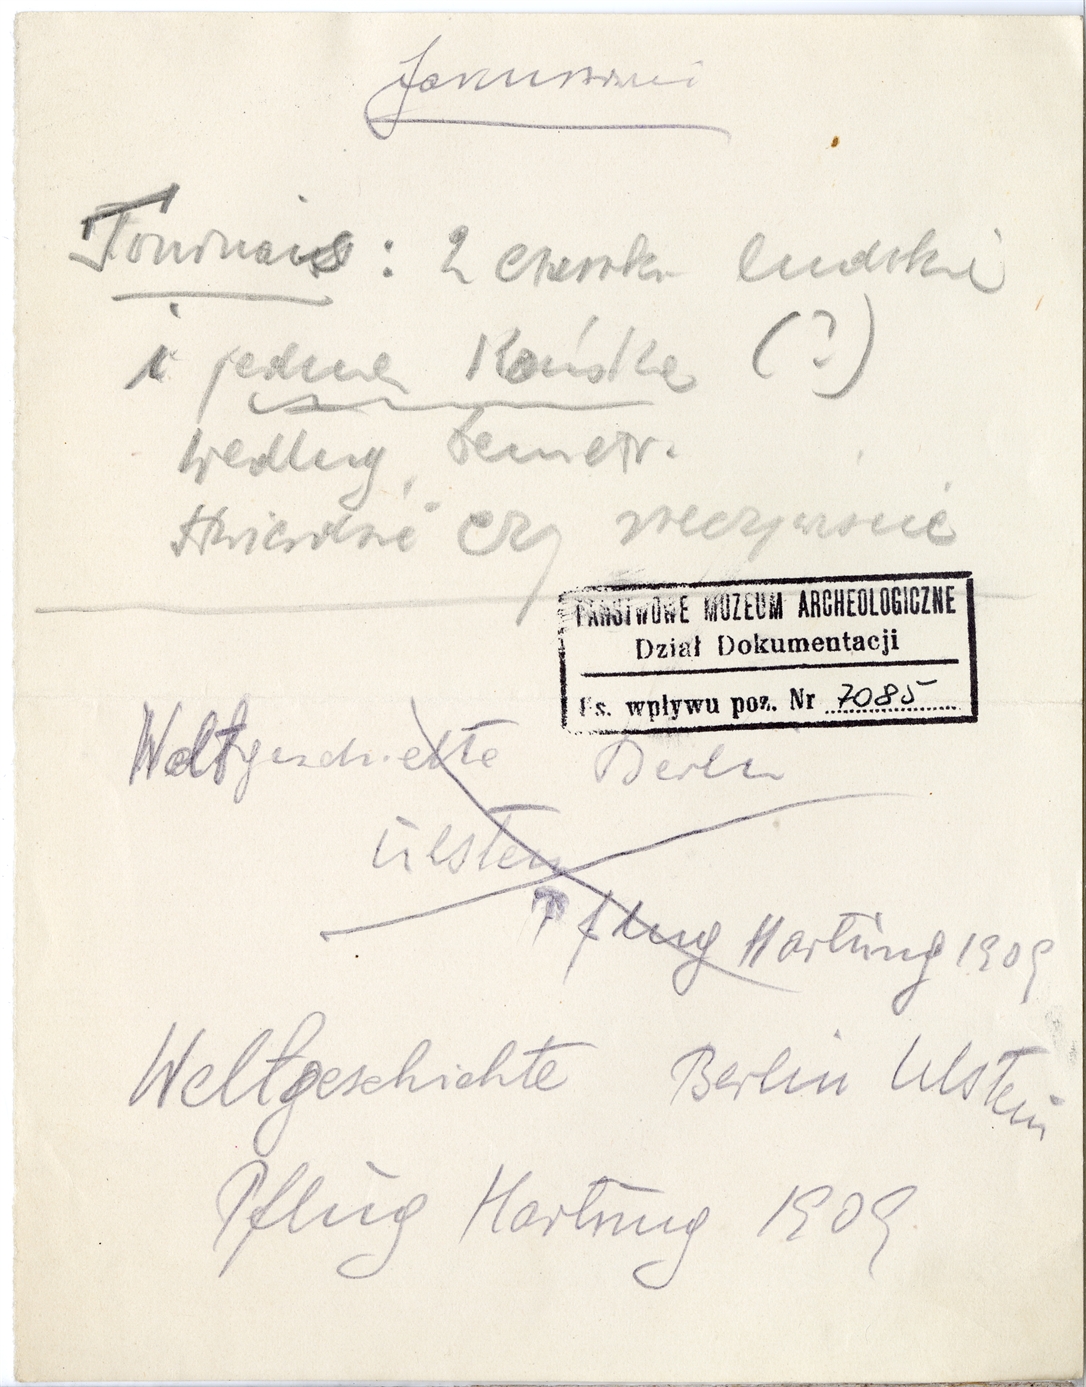 Tournais : 2 czaszki ludzkie
i jedna Końska (?)
według Demetr.
stwierdzić czy rzeczywiście
PAŃSTWOWE MUZEUM ARCHEOLOGICZNE
Dział Dokumentacji
Ks. wpływu poz. Nr 7085
Weltgeschichte Berlin
Ulstein
Pflug Hartung 1909
Weltgeschichte Berlin Ulstein
Pflug Hartung 1909.